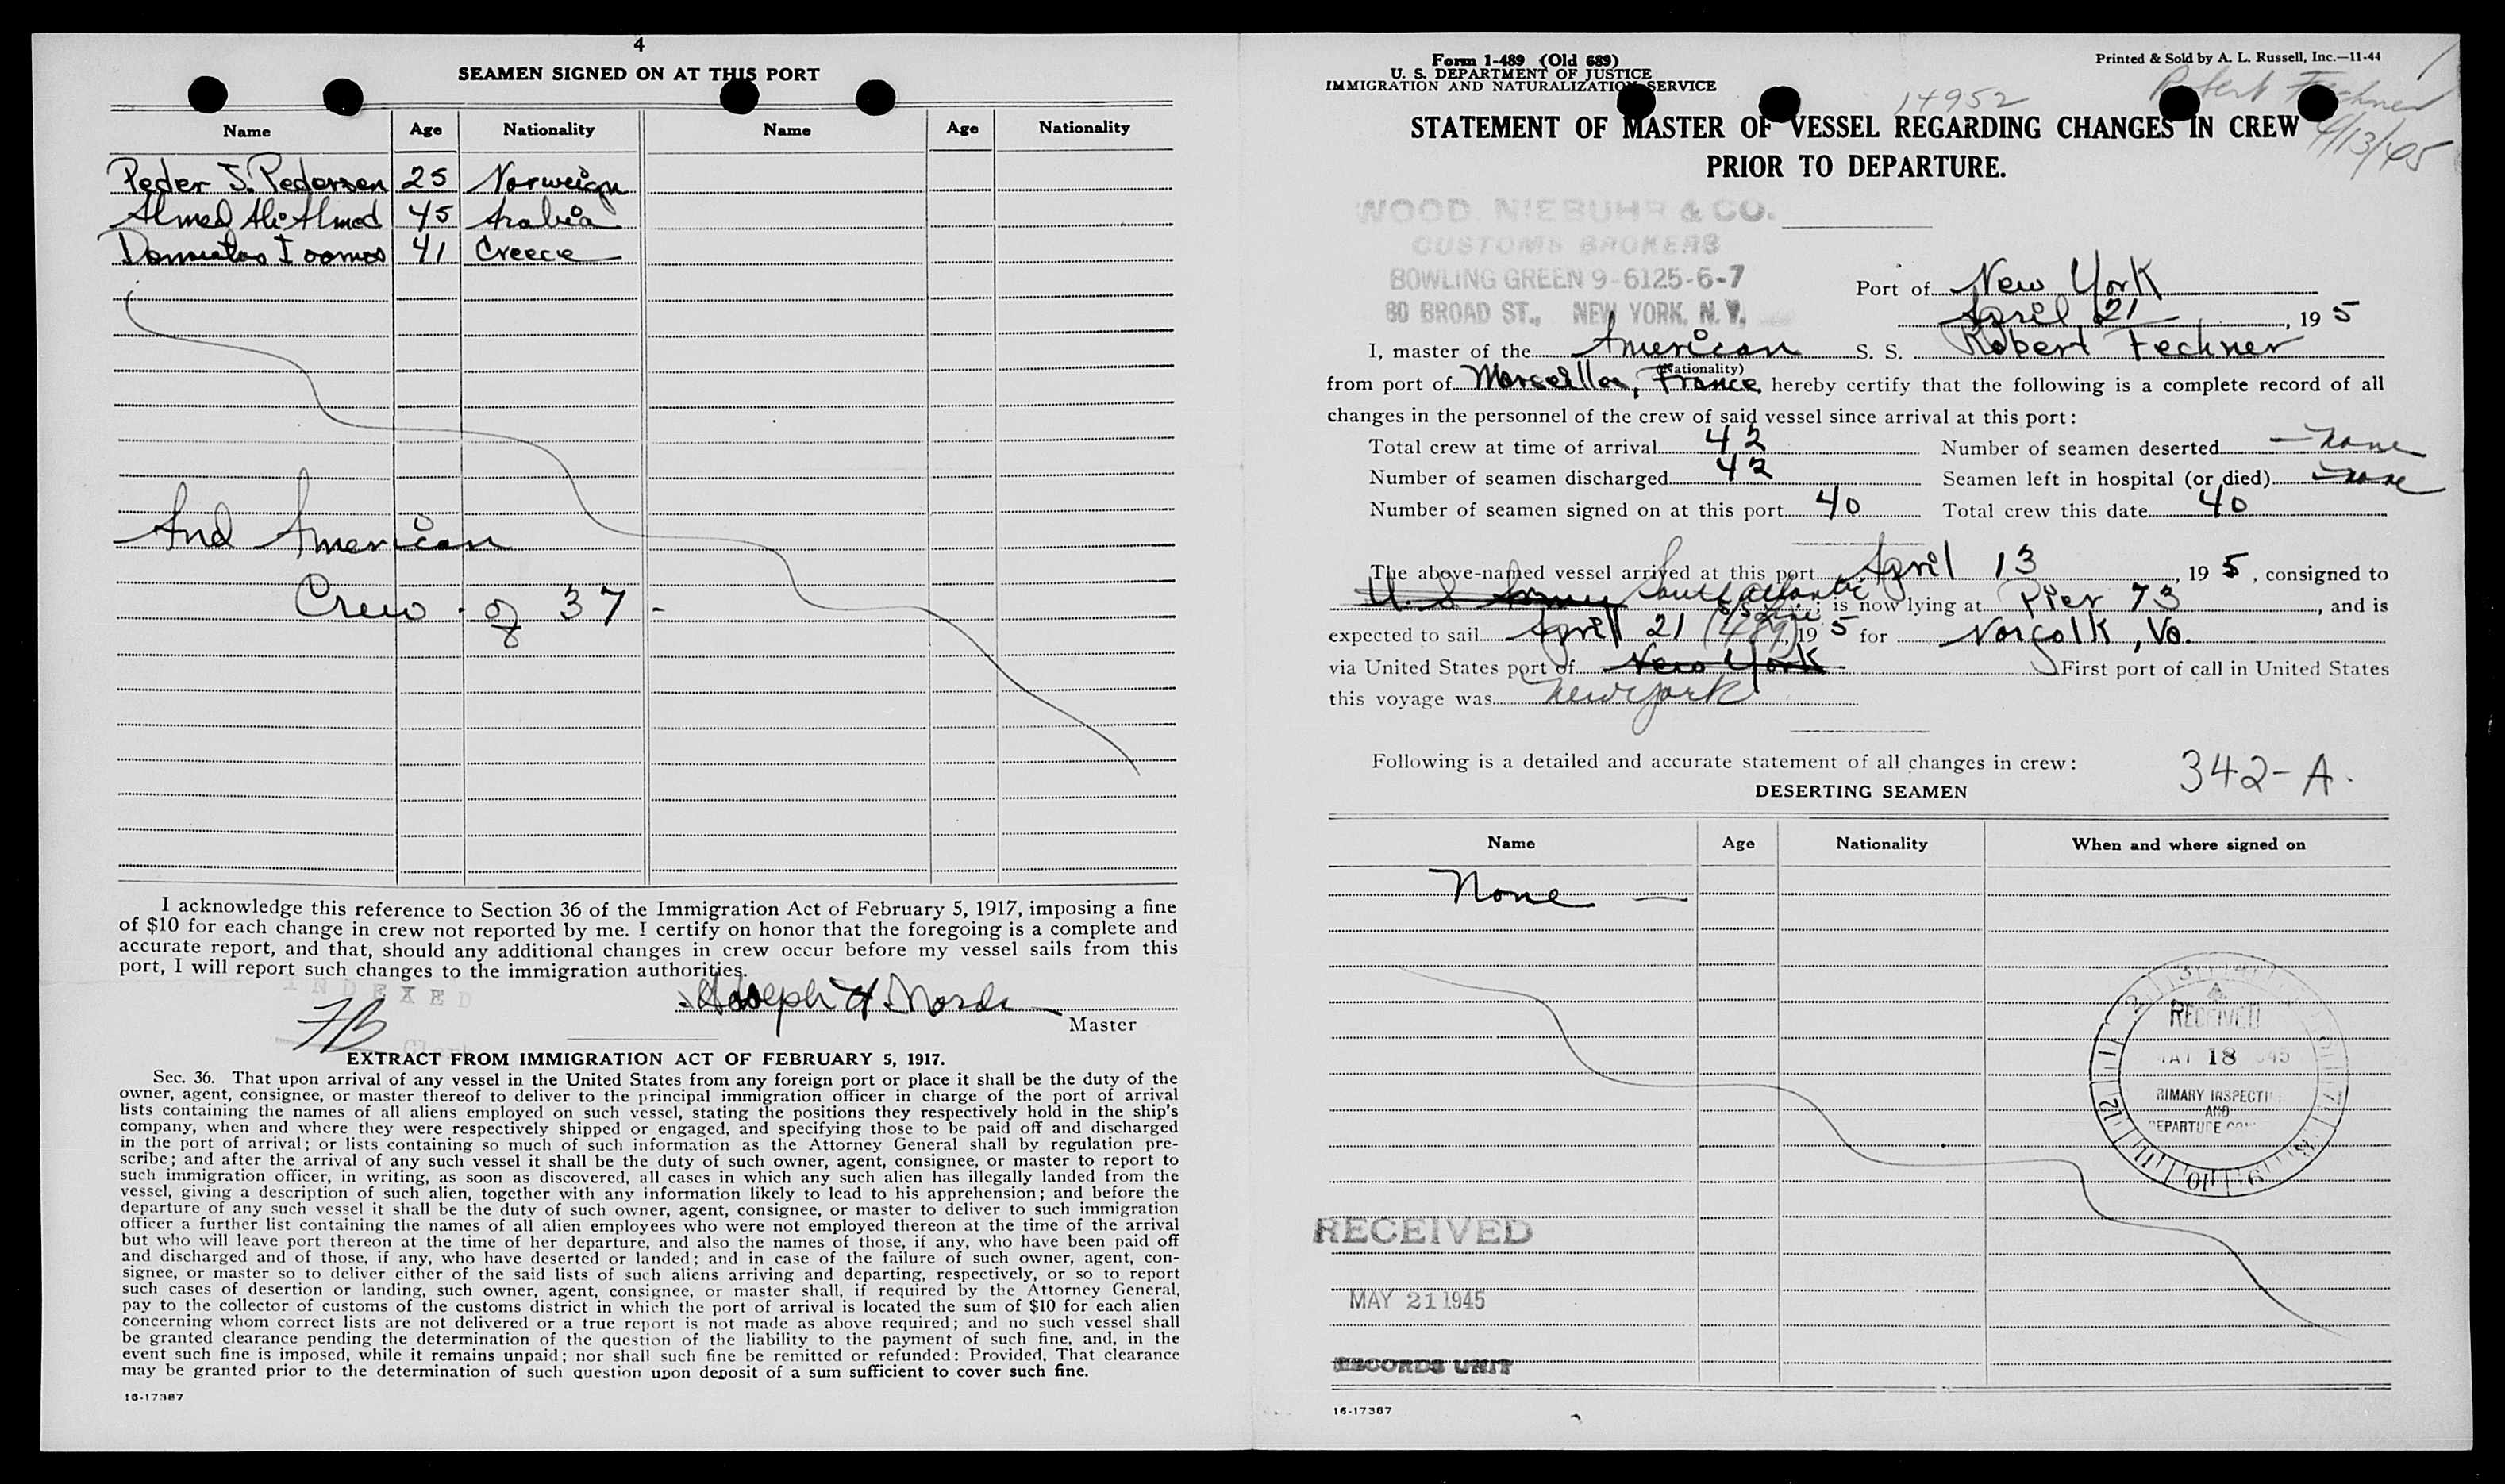 4
SEAMEN SIGNED ON AT THIS PORT
Name Age Nationality Name Age Nationality
Peder J. Pedersen 25 Norweign
Ahmed Ali Ahmed 45 Arabia
41 Creece
And American
Crew of 37 -
I acknowledge this reference to Section 36 of the Immigration Act of February 5, 1917, imposing a fine
of $10 for each change in crew not reported by me. I certify on honor that the foregoing is a complete and
accurate report, and that, should any additional changes in crew occur before my vessel sails from this
port, I will report such changes to the immigration authorities.
INDEXED
Joseph H.
Master
FB
Clerk
EXTRACT FROM IMMIGRATION ACT OF FEBRUARY 5, 1917.
Sec. 36. That upon arrival of any vessel in the United States from any foreign port or place it shall be the duty of the
owner, agent, consignee, or master thereof to deliver to the principal immigration officer in charge of the port of arrival
lists containing the names of all aliens employed on such vessel, stating the positions they respectively hold in the ship's
company, when and where they were respectively shipped or engaged, and specifying those to be paid off and discharged
in the port of arrival; or lists containing so much of such information as the Attorney General shall by regulation pre-
scribe; and after the arrival of any such vessel it shall be the duty of such owner, agent, consignee, or master to report to
such immigration officer, in writing, as soon as discovered, all cases in which any such alien has illegally landed from the
vessel, giving a description of such alien, together with any information likely to lead to his apprehension; and before the
departure of any such vessel it shall be the duty of such owner, agent, consignee, or master to deliver to such immigration
officer a further list containing the names of all alien employees who were not employed thereon at the time of the arrival
but who will leave port thereon at the time of her departure, and also the names of those, if any, who have been paid off
and discharged and of those, if any, who have deserted or landed; and in case of the failure of such owner, agent, con-
signee, or master so to deliver either of the said lists of such aliens arriving and departing, respectively, or so to report
such cases of desertion or landing, such owner, agent, consignee, or master shall, if required by the Attorney General,
pay to the collector of customs of the customs district in which the port of arrival is located the sum of $10 for each alien
concerning whom correct lists are not delivered or a true report is not made as above required; and no such vessel shall
be granted clearance pending the determination of the question of the liability to the payment of such fine, and, in the
event such fine is imposed, while it remains unpaid; nor shall such fine be remitted or refunded: Provided, That clearance
may be granted prior to the determination of such question upon deposit of a sum sufficient to cover such fine.
16-17387
Form 1-489 (Old 689)
U. S. DEPARTMENT OF JUSTICE
IMMIGRATION AND NATURALIZATION SERVICE
Printed & Sold by A. L. Russell, Inc.—11-44
14952
Robert Fechner
4/13/45
STATEMENT OF MASTER OF VESSEL REGARDING CHANGES IN CREW
PRIOR TO DEPARTURE.
WOOD NIEBUHR & CO.
CUSTOMS BROKERS
BOWLING GREEN 9-6125-6-7
80 BROAD ST., NEW YORK, N. Y.
Port of New York
April 21, 19 5
I, master of the American S. S. Robert Fechner
(Nationality)
from port of Marseilles, France, hereby certify that the following is a complete record of all
changes in the personnel of the crew of said vessel since arrival at this port:
Total crew at time of arrival 42 Number of seamen deserted none
Number of seamen discharged 42 Seamen left in hospital (or died) none
Number of seamen signed on at this port 40 Total crew this date 40
The above-named vessel arrived at this port April 13, 19 5, consigned to
U. S. Army South Atlantic S/S Line; is now lying at Pier 73, and is
expected to sail April 21 (489), 19 5 for Norfolk, Va.
via United States port of New York First port of call in United States
this voyage was New York
Following is a detailed and accurate statement of all changes in crew:
342-A.
DESERTING SEAMEN
Name Age Nationality When and where signed on
None —
RECEIVED
MAY 18 1945
PRIMARY INSPECTION
AND
DEPARTURE
RECEIVED
MAY 21 1945
RECORDS UNIT
16-17387